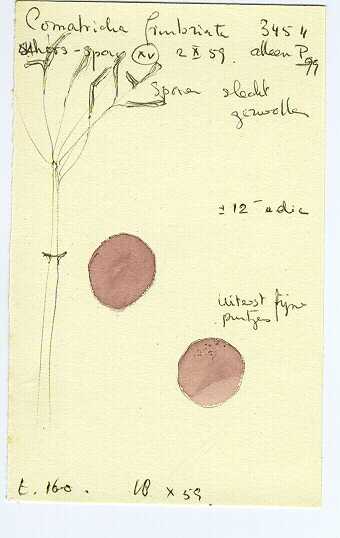 Comatricha fimbriata 3454
spore (XV) 2 X 59. alleen P.
99
Sporen slecht
gezwollen
± 12
uiterst fijne
puntjes
t. 160. x 59